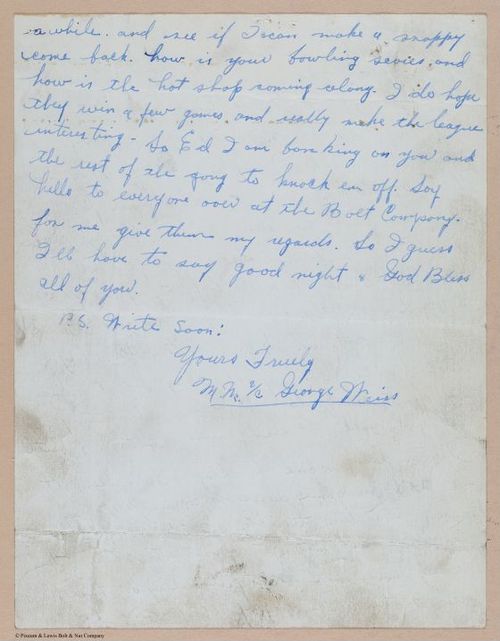 a while. and see if I can make a snappy
come back. how is your bowling series, and
how is the hot shop coming along. I do hope
they win a few games, and really make the league
interesting. So Ed I am banking on you and
the rest of the gang to knock em off. Say
hello to everyone over at the Bolt Company.
for me give them my regards. So I guess
I'll have to say good night & God Bless
all of you.
P.S. Write Soon:
Yours Truely
M.M. 2/c George Weiss
© Pioneer & Lewis Bolt & Nut Company